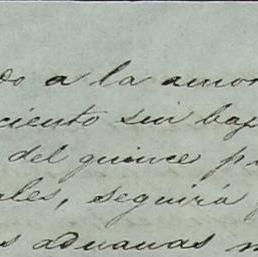 do a la amor
ciento sin baj
del quince p
ales, seguirá
s aduanas m